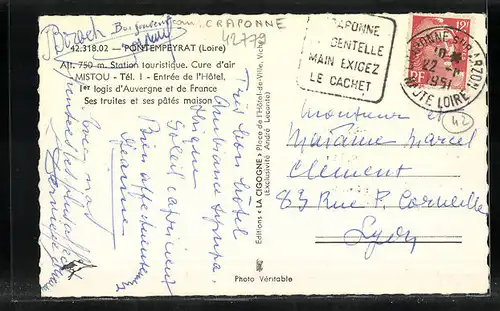 CRAPONNE
42779
42.318.02 - PONTEMPEYRAT (Loire)
Alt. 750 m. Station touristique. Cure d'air
MISTOU - Tél. 1 - Entrée de l'Hôtel.
1er logis d'Auvergne et de France
Ses truites et ses pâtés maison
CRAPONNE
DENTELLE
MAIN EXIGEZ
LE CACHET
12F
RF
CRAPONNE SUR ARZON
10 H
22
1951
HAUTE LOIRE
42
Très bon hôtel
Ambiance sympa
thique
Soleil capricieux
Bien affectueusement
Editions "LA CIGOGNE" Place de l'Hôtel-de-Ville, Vichy
(Exclusivité André Leconte)
Monsieur et
Madame Marcel
Clément
83 Rue P. Corneille
Lyon
Photo Véritable